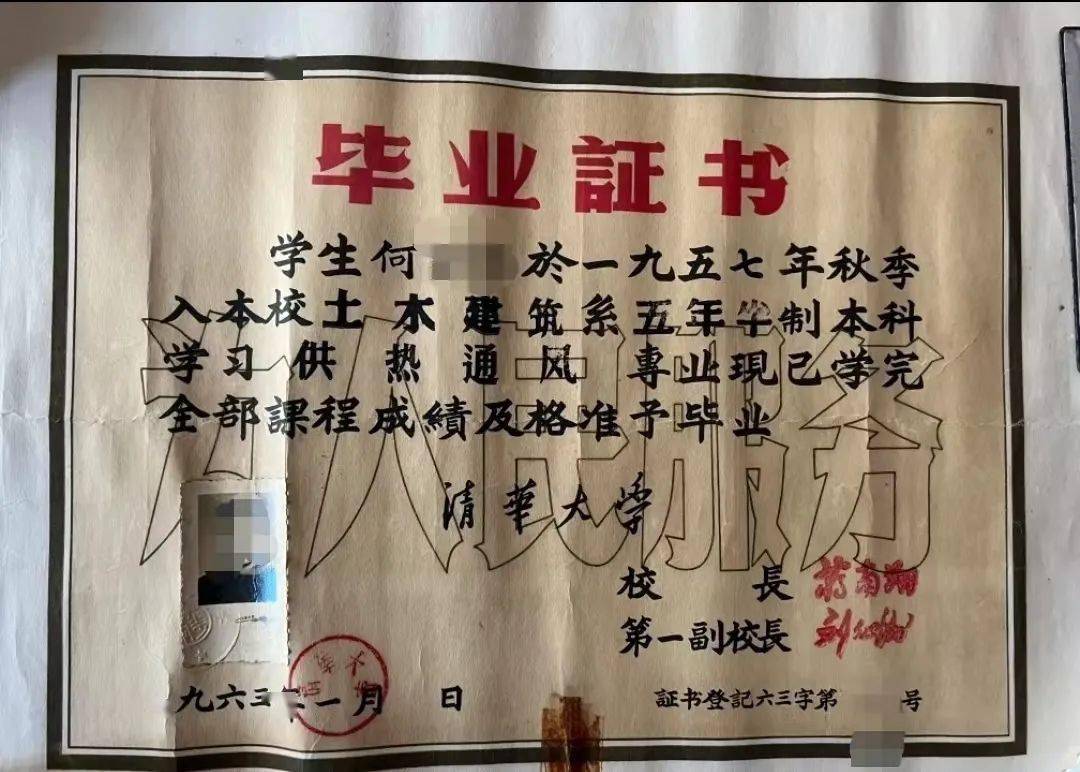 为人民服务
毕业証书
学生何 於一九五七年秋季
入本校土木建筑系五年半制本科
学习供热通风専业現已学完
全部課程成績及格准予毕业
清華大学
校長 蒋南翔
第一副校長 刘仙洲
九六三年一月 日
証书登記六三字第 号